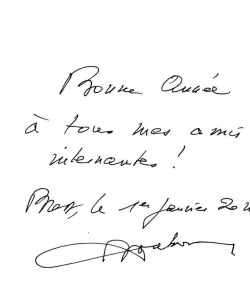 Bonne Année
à tous mes amis
internautes !
Brest, le 1er janvier